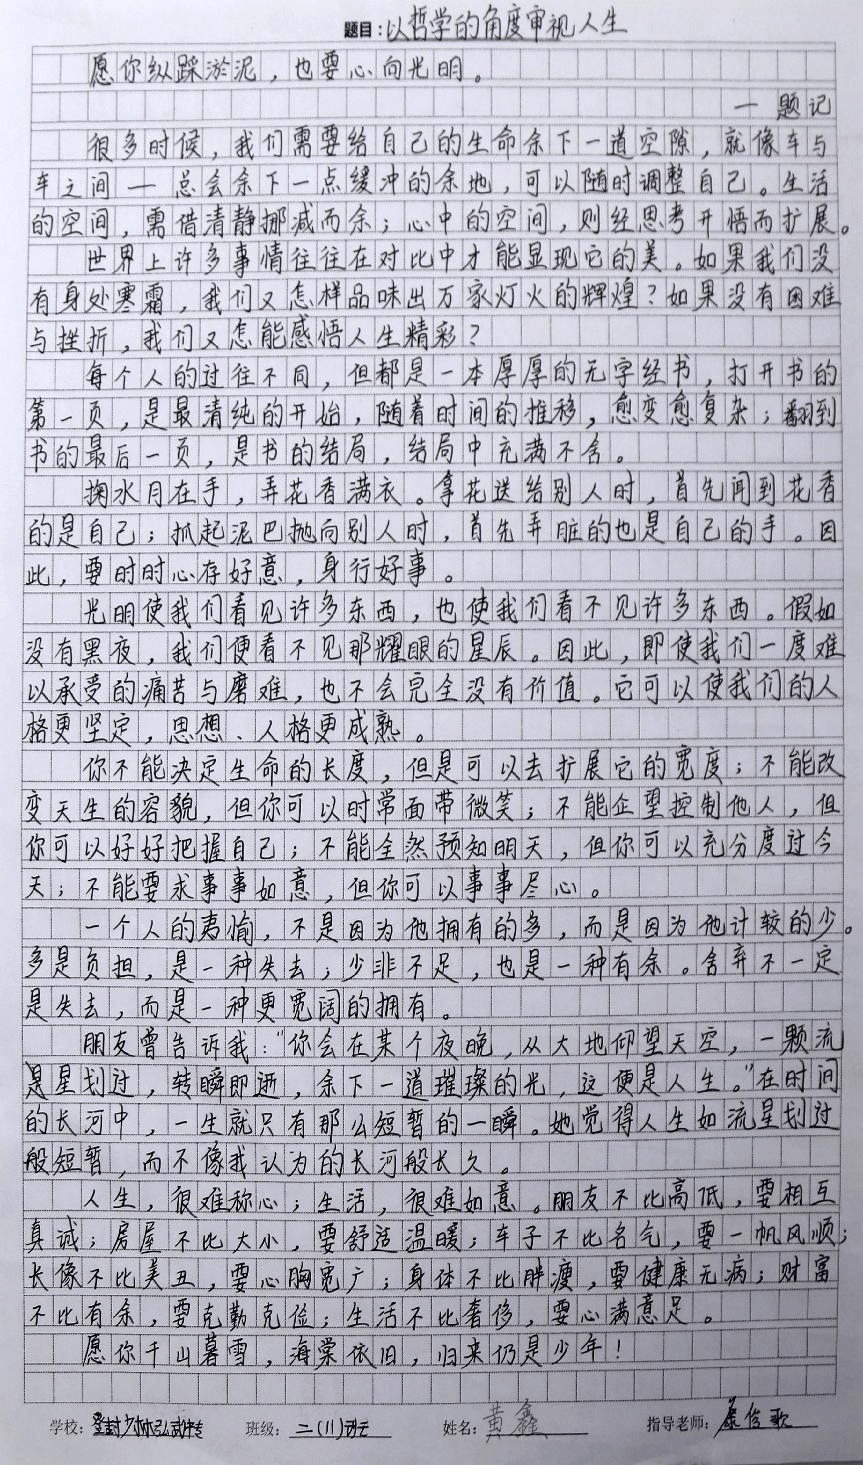 题目：以哲学的角度审视人生
愿你纵踩淤泥，也要心向光明。
一 题记
很多时候，我们需要给自己的生命余下一道空隙，就像车与
车之间 — 总会余下一点缓冲的余地，可以随时调整自己。生活
的空间，需借清静挪减而余；心中的空间，则经思考开悟而扩展。
世界上许多事情往往在对比中才能显现它的美。如果我们没
有身处寒霜，我们又怎样品味出万家灯火的辉煌？如果没有困难
与挫折，我们又怎能感悟人生精彩？
每个人的过往不同，但都是一本厚厚的无字经书，打开书的
第一页，是最清纯的开始，随着时间的推移，愈变愈复杂；翻到
书的最后一页，是书的结局，结局中充满不舍。
掬水月在手，弄花香满衣。拿花送给别人时，首先闻到花香
的是自己；抓起泥巴抛向别人时，首先弄脏的也是自己的手。因
此，要时时心存好意，身行好事。
光明使我们看见许多东西，也使我们看不见许多东西。假如
没有黑夜，我们便看不见那耀眼的星辰。因此，即使我们一度难
以承受的痛苦与磨难，也不会完全没有价值。它可以使我们的人
格更坚定，思想、人格更成熟。
你不能决定生命的长度，但是可以去扩展它的宽度；不能改
变天生的容貌，但你可以时常面带微笑；不能企望控制他人，但
你可以好好把握自己；不能全然预知明天，但你可以充分度过今
天；不能要求事事如意，但你可以事事尽心。
一个人的愉，不是因为他拥有的多，而是因为他计较的少。
多是负担，是一种失去；少非不足，也是一种有余。舍弃不一定
是失去，而是一种更宽阔的拥有。
朋友曾告诉我：“你会在某个夜晚，从大地仰望天空，一颗流
星划过，转瞬即逝，余下一道璀璨的光，这便是人生。”在时间
的长河中，一生就只有那么短暂的一瞬。她觉得人生如流星划过
般短暂，而不像我认为的长河般长久。
人生，很难称心；生活，很难如意。朋友不比高低，要相互
真诚；房屋不比大小，要舒适温暖；车子不比名气，要一帆风顺；
长像不比美丑，要心胸宽广；身体不比胖瘦，要健康无病；财富
不比有余，要克勤克俭；生活不比奢侈，要心满意足。
愿你千山暮雪，海棠依旧，归来仍是少年！
学校：登封少林弘武中专 班级：二(11)班 姓名：黄鑫 指导老师：俊歌